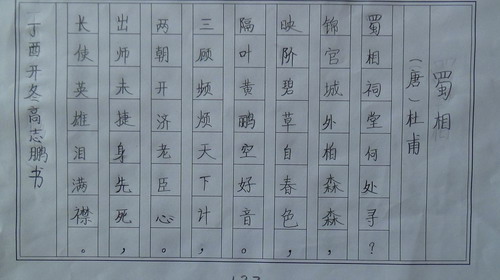 蜀相
（唐）杜甫
蜀相祠堂何处寻？
锦官城外柏森森，
映阶碧草自春色，
隔叶黄鹂空好音。
三顾频烦天下计，
两朝开济老臣心。
出师未捷身先死，
长使英雄泪满襟。
丁酉开冬高志鹏书